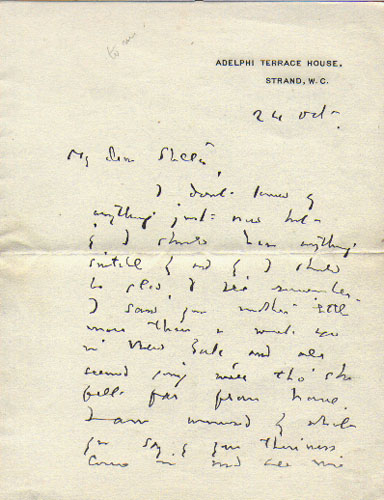 ADELPHI TERRACE HOUSE,
STRAND, W.C.
24 Oct
My dear
I don't know of
anything just now but
if I should hear anything
suitable I should
be glad I will remember.
I saw your mother
more than a week ago
in New York and she
seemed very nice tho' she
felt far from home.
I am of what
you say of your
Come in and see me